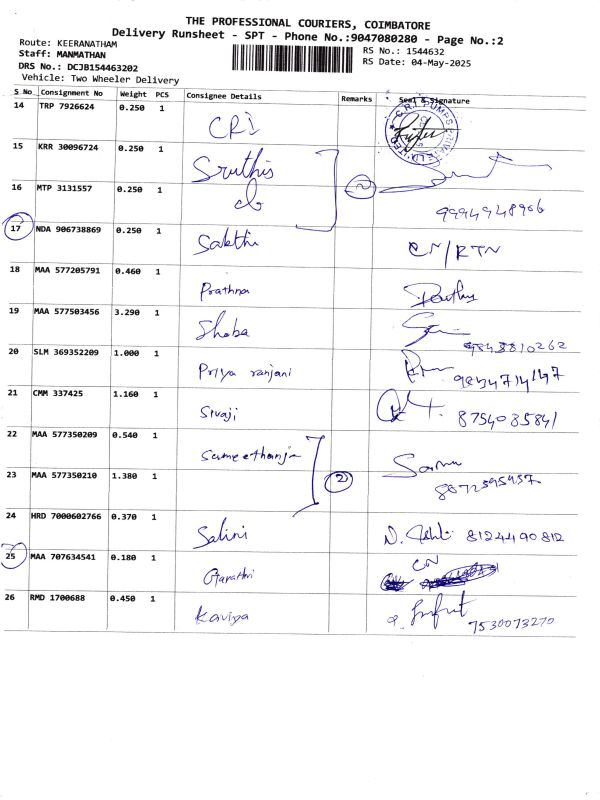 THE PROFESSIONAL COURIERS, COIMBATORE
Delivery Runsheet - SPT - Phone No.:9047080280 - Page No.:2
Route: KEERANATHAM
Staff: MANMATHAN
RS No.: 1544632
DRS No.: DCJB154463202
RS Date: 04-May-2025
Vehicle: Two Wheeler Delivery
S No Consignment No Weight PCS Consignee Details Remarks Seal & Signature
14 TRP 7926624 0.250 1 CRI
C.R.I. PUMPS
15 KRR 30096724 0.250 1 Sruthis
16 MTP 3131557 0.250 1 cb 2 9994948966
17 NDA 906738869 0.250 1 Sakthi CN/RTN
18 MAA 577205791 0.460 1 Prathna
19 MAA 577503456 3.290 1 Shoba 9843810262
20 SLM 369352209 1.000 1 Priya ranjani 9834714147
21 CMM 337425 1.160 1 Sivaji 8754085841
22 MAA 577350209 0.540 1 Sameethanja
23 MAA 577350210 1.380 1 2
24 HRD 7000602766 0.370 1 Salini 8124490812
25 MAA 707634541 0.180 1 CN
26 RMD 1700688 0.450 1 Kaviya 7530073270